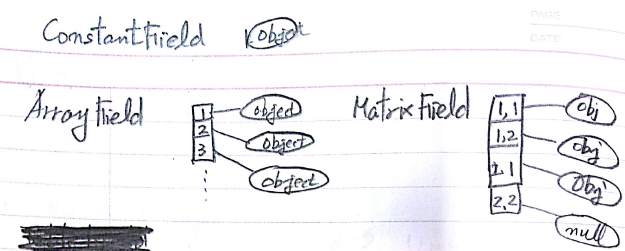 PAGE
DATE
ConstantField object
ArrayField
1 object
2 object
3 object
MatrixField
1,1 obj
1,2 obj
2,1 obj
2,2 null